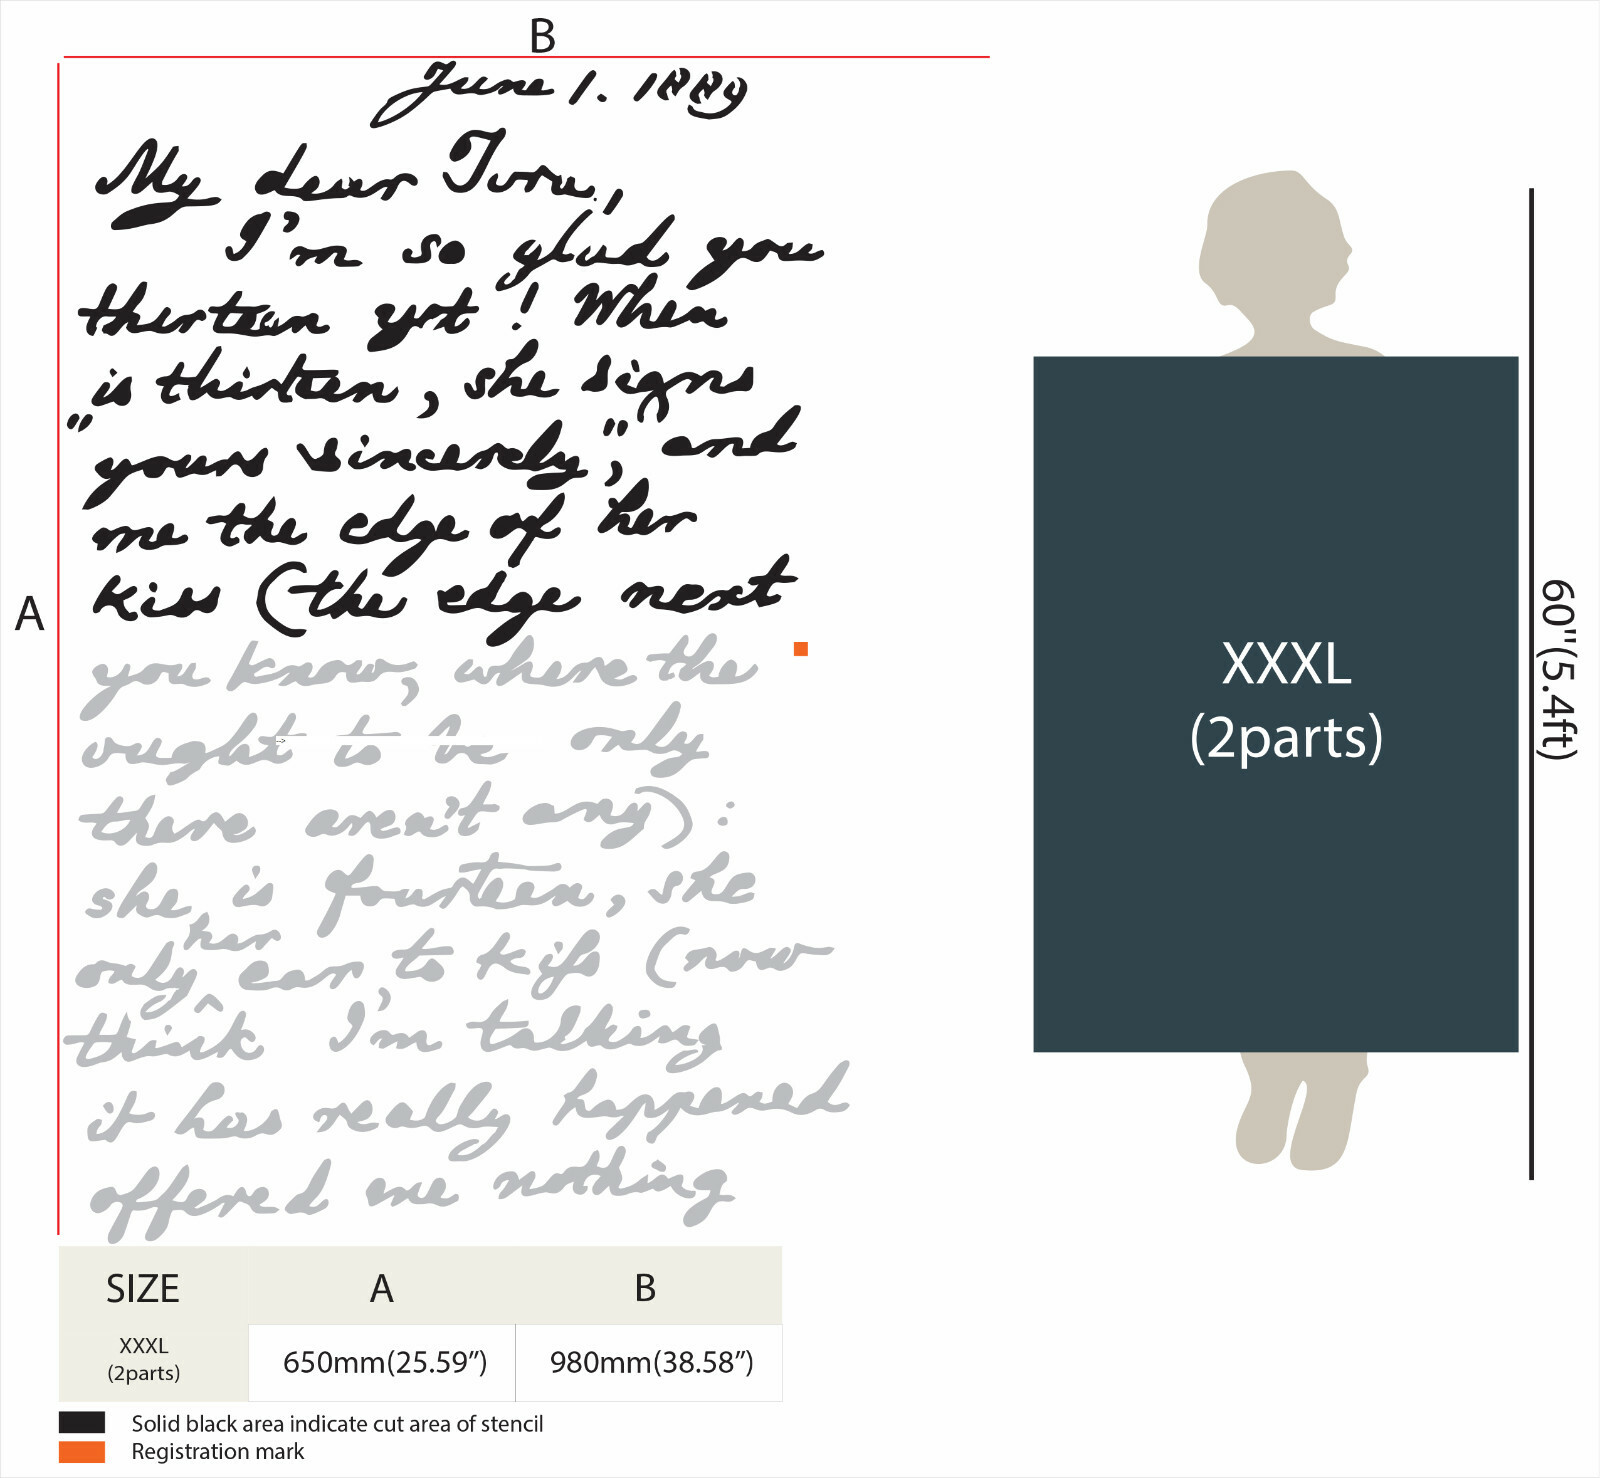 B
June 1. 1889
My dear Tora,
I'm so glad you
thirteen yet! When
is thirteen, she signs
"yours sincerely," and
me the edge of her
kiss (the edge next
A
you know, where the
ought to be only
there aren't any):
she is fourteen, she
her
only ear, to kiss (now
think I'm talking
it has really happened
offered me nothing
XXXL
(2parts)
60"(5.4ft)
SIZE A B
XXXL 650mm(25.59”) 980mm(38.58”)
(2parts)
Solid black area indicate cut area of stencil
Registration mark